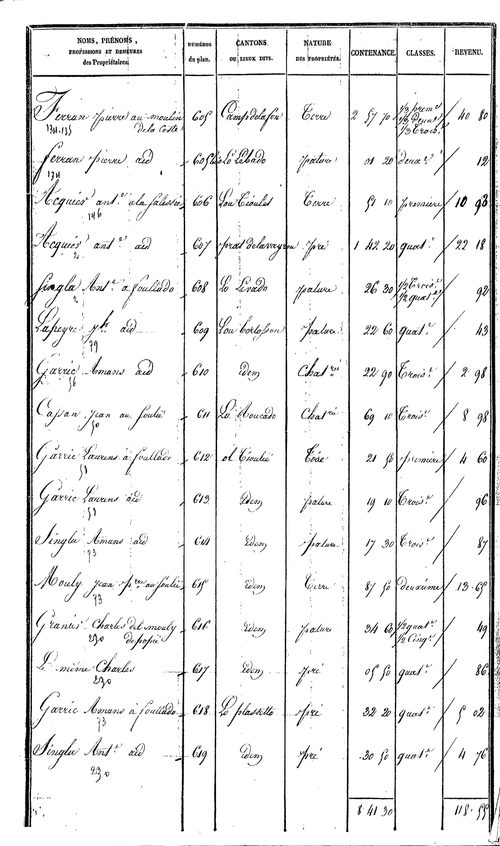 NOMS, PRÉNOMS, PROFESSIONS ET DEMEURES des Propriétaires. NUMÉROS du plan. CANTONS OU LIEUX DITS. NATURE DES PROPRIÉTÉS. CONTENANCE. CLASSES. REVENU.
Ferran pierre au moulin de la Coste 605 Camp delafon Terre 2 57 70 1/3 prem.e 1/3 deux.e 1/3 Trois.e 40 80
134.135
ferran pierre aid 605 bis Lo Lebado pature 31 20 deux.e 12
134
Acquiés ant.e a la falessie 606 Lou Tioulet Terre 51 10 premiere 10 93
146
Acquiés ant.e aid 607 prat delavayren pré 1 42 20 quat.e 22 18
Singla Ant.e à foullado 608 Lo Levado pature 26 30 1/2 Trois.e 1/2 quat.e 92
Lapeyre aid 609 Lou bortossou pature 22 60 quat.e 43
79
Garric Amans aid 610 Edem Chat.rie 22 90 Trois.e 2 98
56
Cassan jean au foulié 611 La Boucado Chat.rie 69 10 Trois.e 8 98
50
Garric Laurens à foullado 612 ol Tioulié Terre 21 50 premiere 4 60
51
Garric Laurens aid 613 Edem pature 19 10 Trois.e 96
51
Singla Amans aid 614 Edem pature 17 30 Trois.e 87
73
Mouly jean p.re au foulié 615 Edem Terre 87 50 deuxieme 13 65
73
Granies Charles dit mouly 616 Edem pature 34 60 1/2 quat.e 1/2 Cinq.e 49
230
Le même Charles 617 Edem pré 05 50 quat.e 86
230
Garric Amans à foullado 618 Lo plassetto pré 32 20 quat.e 5 02
73
Singla Ant.e aid 619 Edem pré 30 50 quat.e 4 76
230
8 41 30 118 55